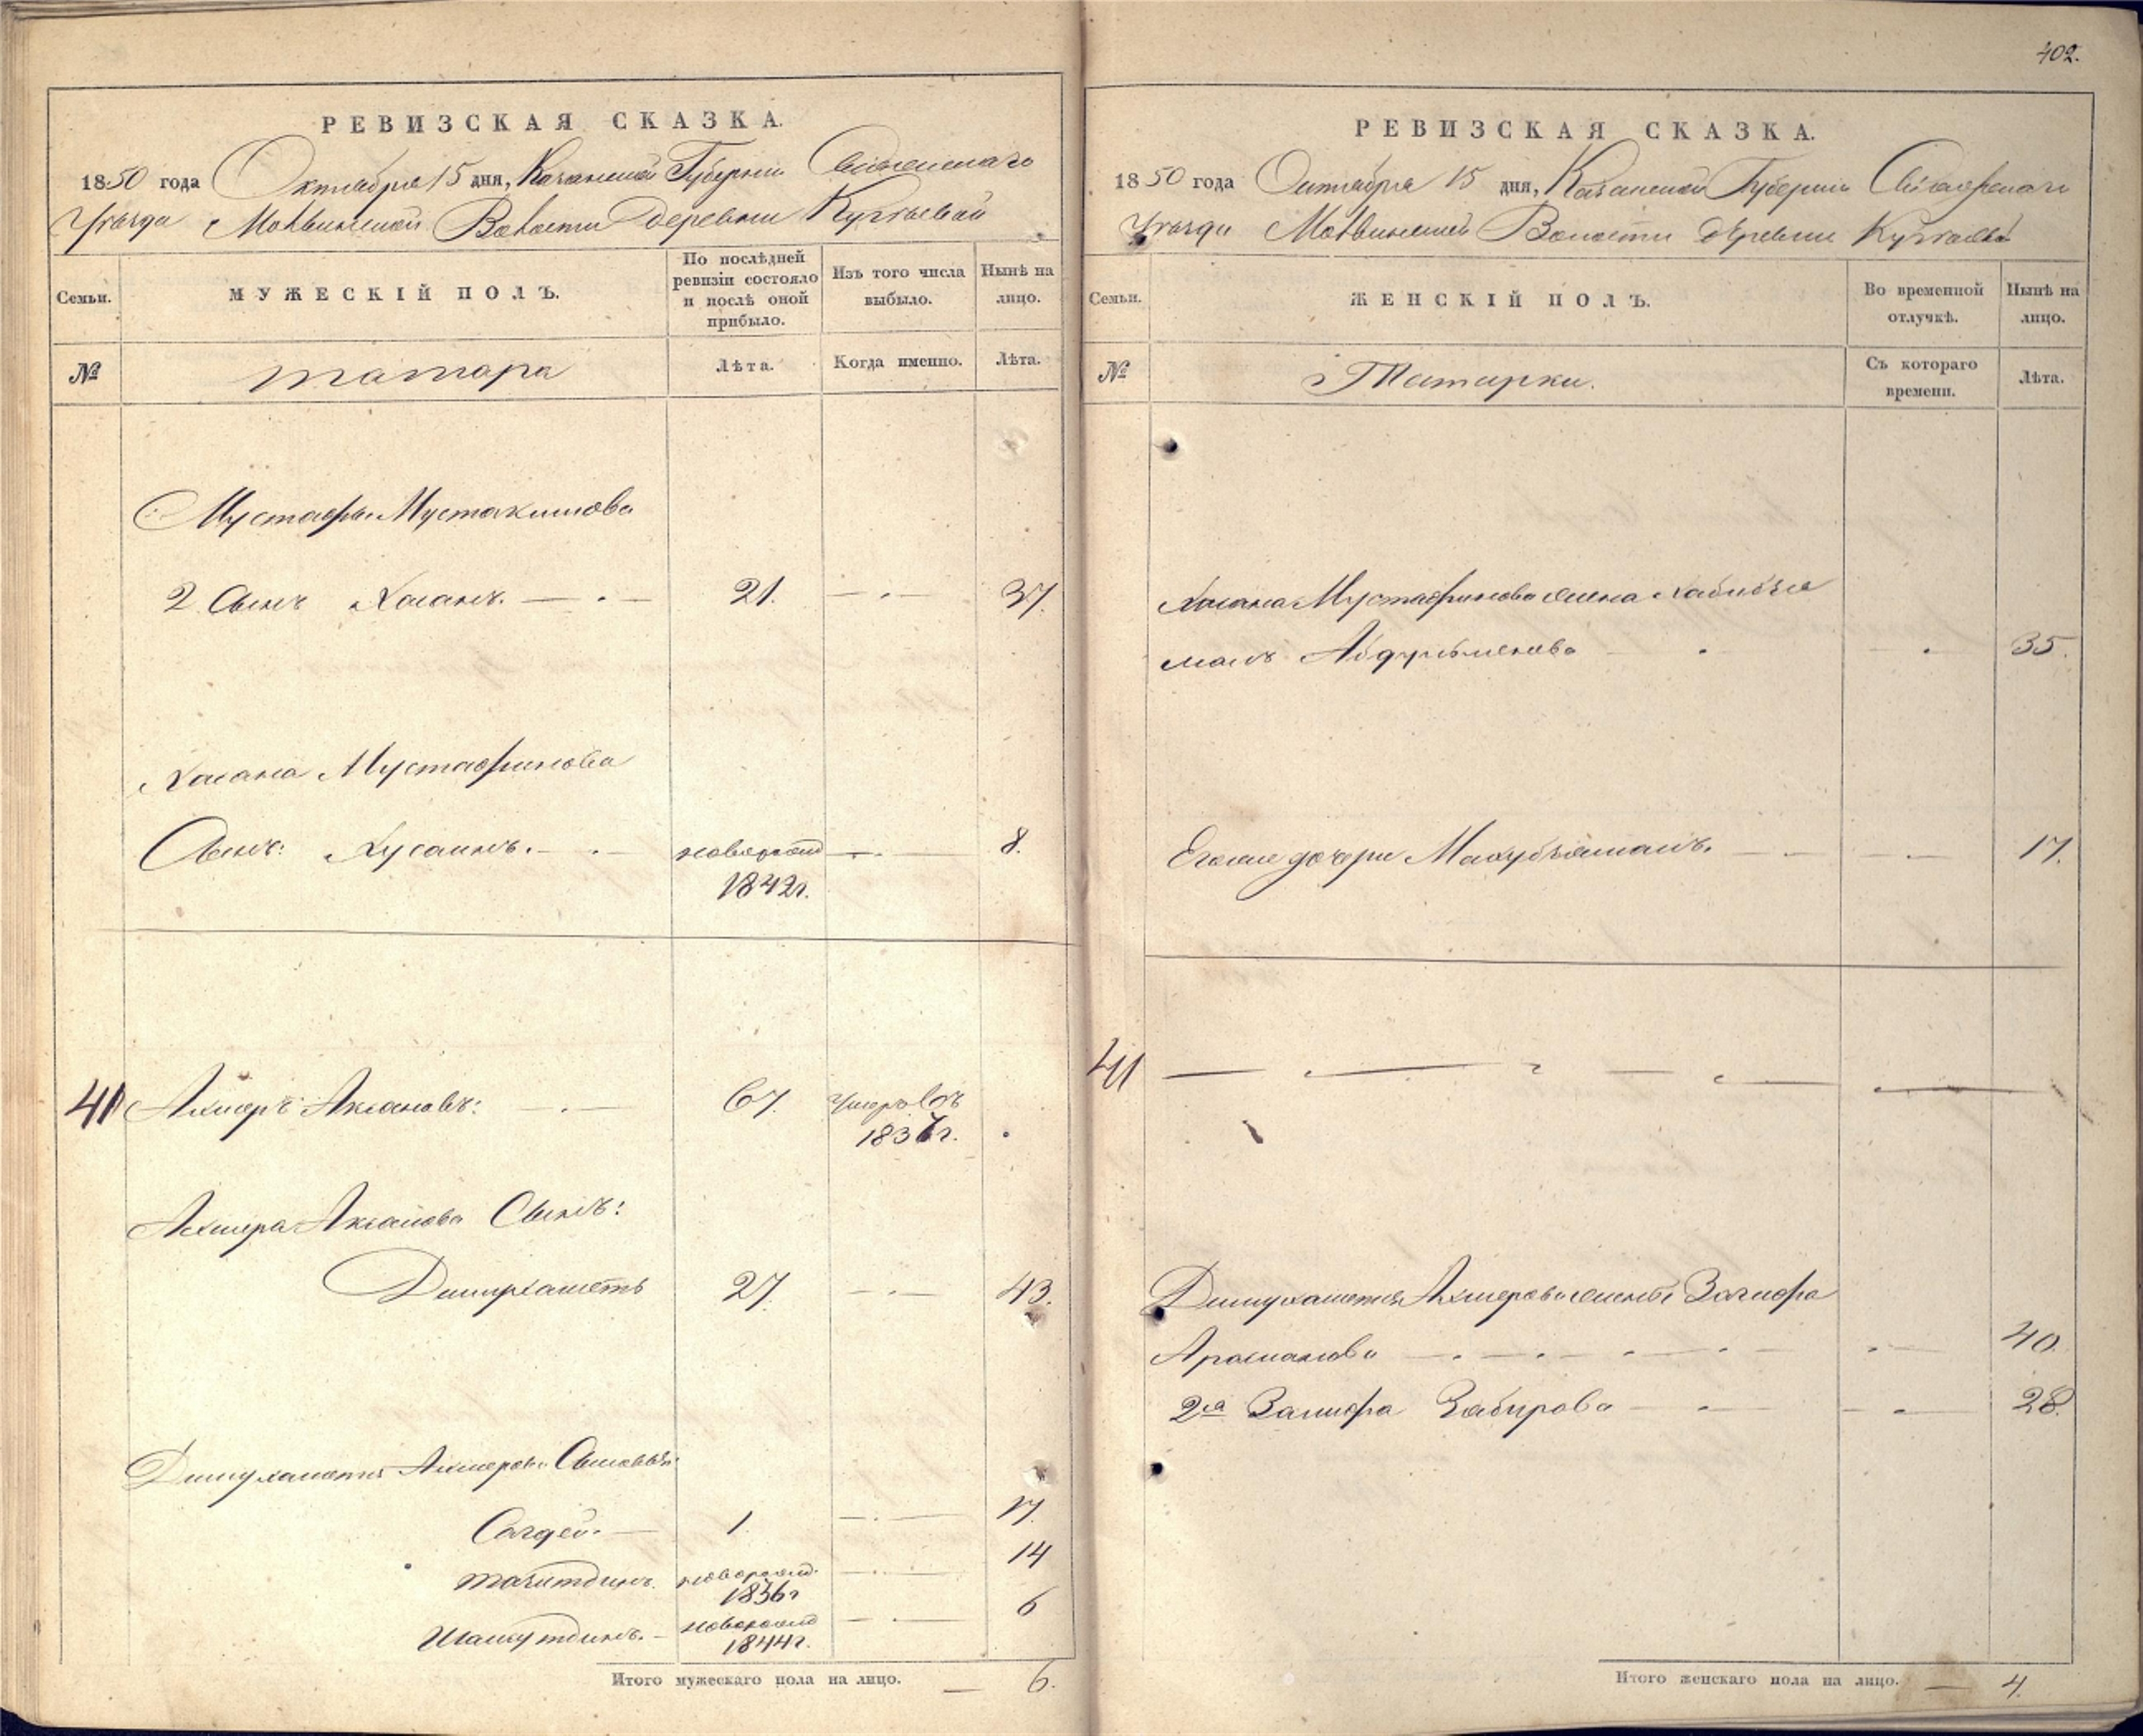 402.
РЕВИЗСКАЯ СКАЗКА.
1850 года Октября 15 дня, Казанской Губернии Свіяжскаго
Уѣзда Молвинской Волости Деревни Кугѣевой
Семьи.
МУЖЕСКІЙ ПОЛЪ.
По послѣдней ревизіи состояло и послѣ оной прибыло.
Изъ того числа выбыло.
Нынѣ на лицо.
№
татара
Лѣта.
Когда именно.
Лѣта.
Мустафы Мустакимова
2 Сынъ Хасанъ. 21. 37.
Хасана Мустафинова
Сынъ: Хусаинъ. новорожд 8.
1842г.
41 Ахмеръ Аксановъ: 67. Умеръ въ
183 г.
Ахмера Аксанова Сынъ:
Динмухаметъ 27. 43.
Динмухаметя Ахмерова Сыновья:
Сагдей. 1. 17.
тазитдинъ. новорожд. 14
1836г
Шамсутдинъ. новорожд 6
1844г.
Итого мужескаго пола на лицо. 6.
РЕВИЗСКАЯ СКАЗКА.
1850 года Октября 15 дня, Казанской Губернии Свіяжскаго
Уѣзда Молвинской Волости деревни Кугѣевой
Семьи.
ЖЕНСКІЙ ПОЛЪ.
Во временной отлучкѣ.
Нынѣ на лицо.
№
Татарки.
Съ котораго времени.
Лѣта.
Хасана Мустафинова жена Хабибзя
малъ Абдулменова 35.
Его же дочери Махубзямалъ. 17.
41
Динмухаметя Ахмерова жены Загифа
Арасланова 40.
2я Залифа Забирова 28.
Итого женскаго пола на лицо. 4.